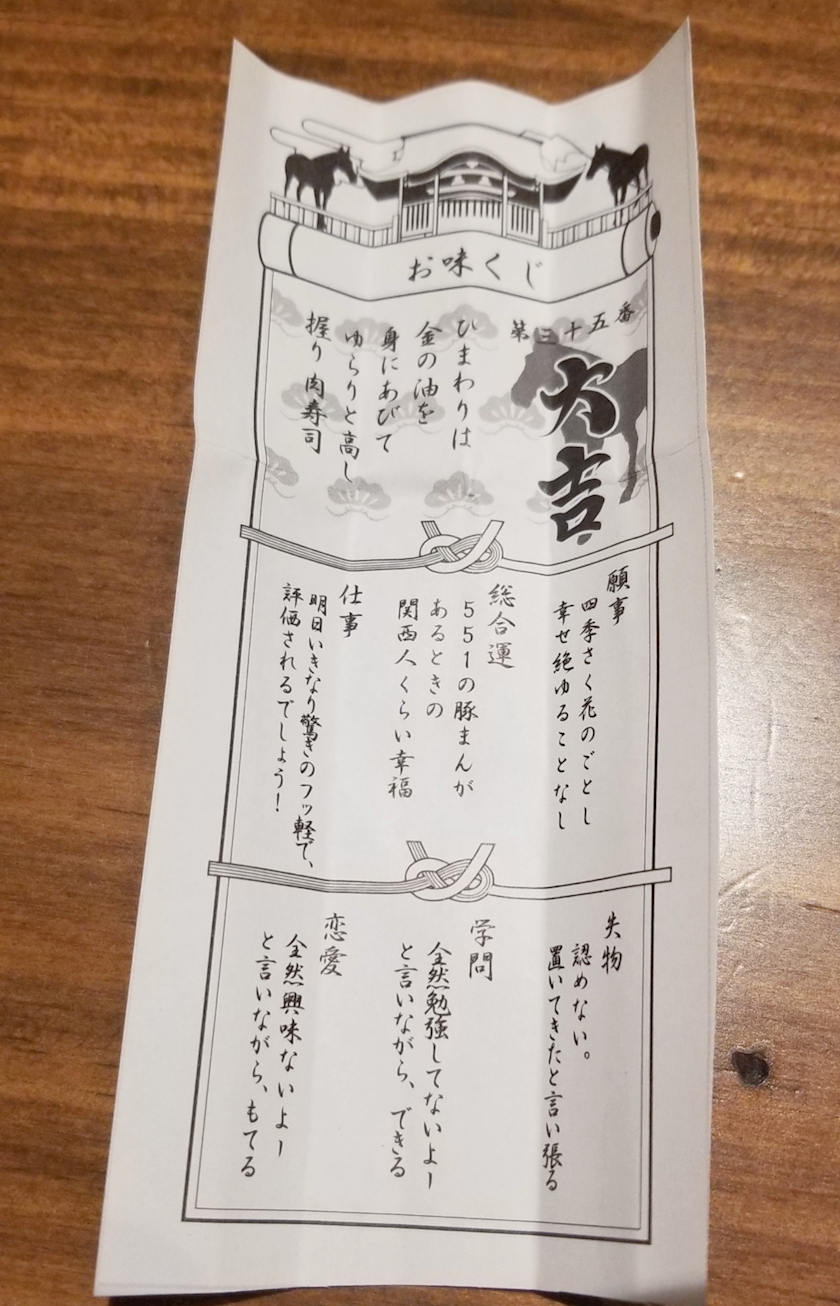 お味くじ
第三十五番
大吉
ひまわりは
金の油を
身にあびて
ゆらりと高し
握り肉寿司
願事
四季さく花のごとし
幸せ絶ゆることなし
総合運
551の豚まんが
あるときの
関西人くらい幸福
仕事
明日いきなり驚きのフッ軽で、
評価されるでしょう！
失物
認めない。
置いてきたと言い張る
学問
全然勉強してないよー
と言いながら、できる
恋愛
全然興味ないよー
と言いながら、もてる